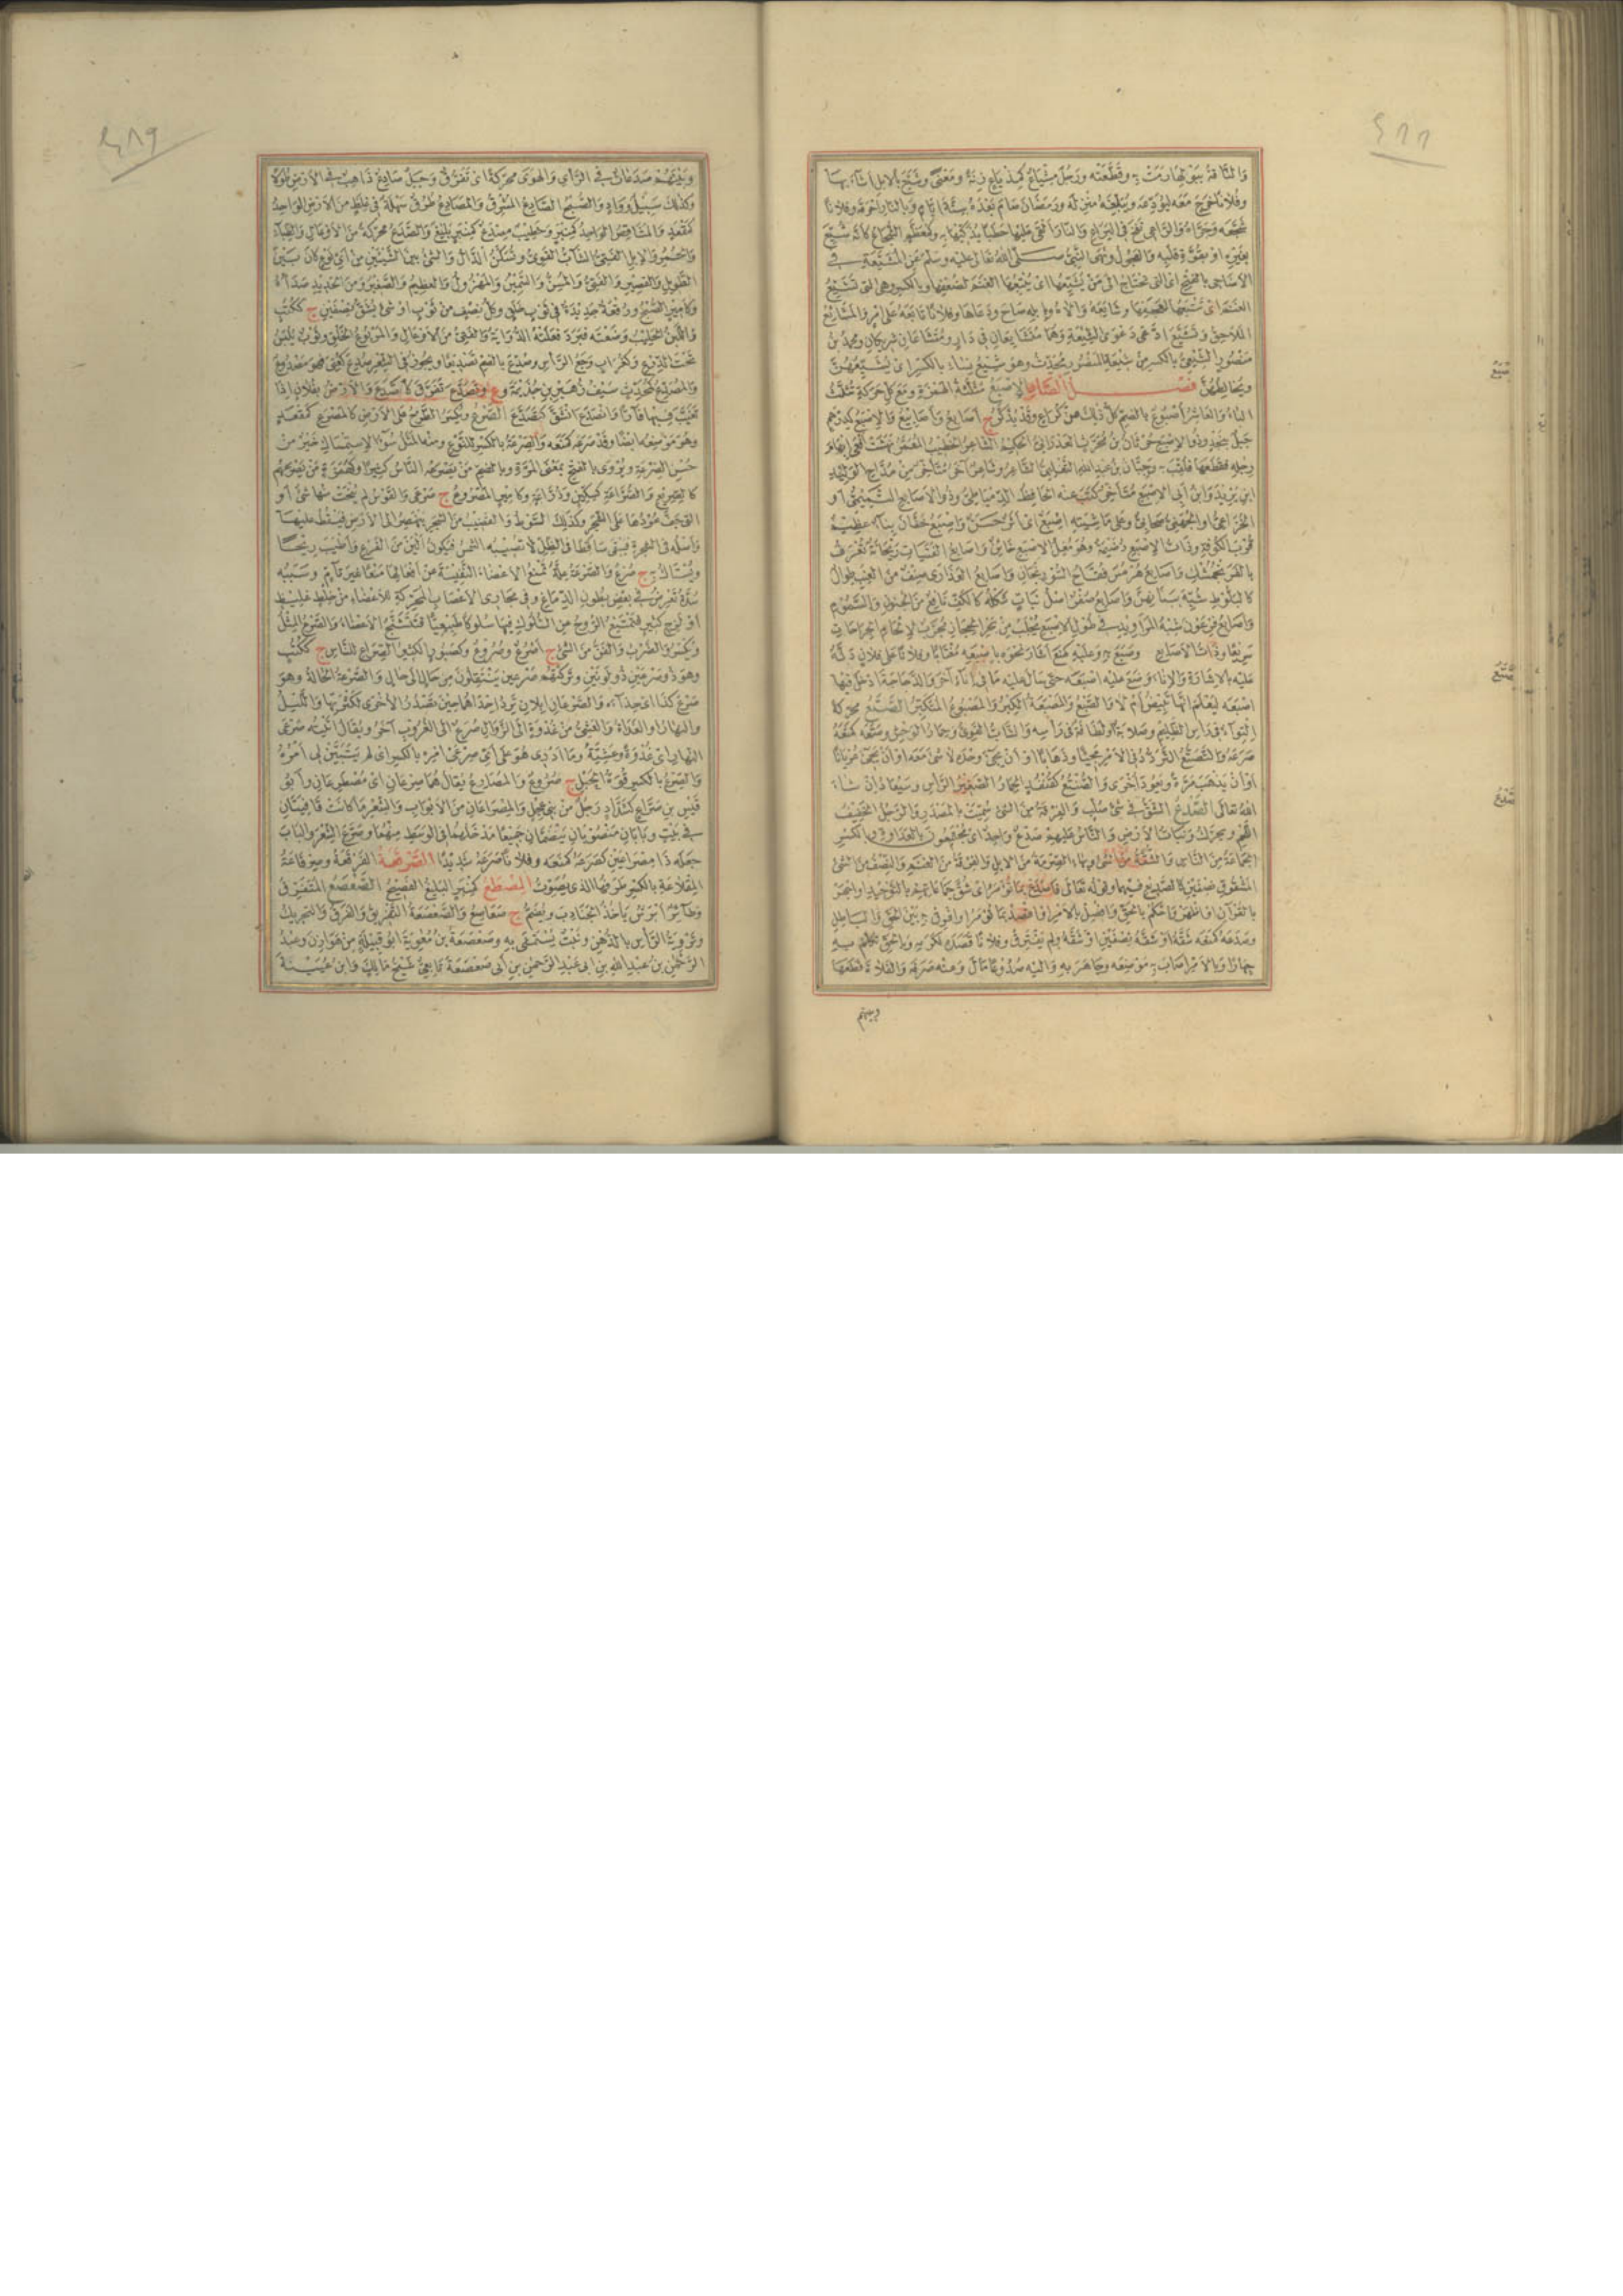 ٤٨٨
وفلانا خرج معه ليودعه ويبلغه منزله ورمضان صام بعده ستة أيام وبالنار أحرقه وفلانا
شجعه وجرأه والراعي نفخ في اليراع والنار ألقى عليها حطبا يذكيها به وكمعظم الشجاع كأنه شيع
بغيره أو بقوة قلبه والعجول ونهى النبي صلى الله تعالى عليه وسلم عن المشيعة في
الأضاحي بالفتح أي التي تحتاج إلى من يشيعها أي يتبعها الغنم لضعفها وبالكسر وهي التي تشيع
الغنم أي تتبعها لعجفها وشايعه والاه وبإبله صاح ودعاها وفلانا تابعه على أمر والمشايع
اللاحق وتشيع ادعى دعوى الشيعة وهما متشايعان في دار ومتشاعان شريكان ومحمد بن
منصور الشيعي بالكسر من شيعة المنصور محدث وهو شيع نساء بالكسر أي يشيعهن
ويخالطهن فصل الصاد الإصبع مثلثة الهمزة ومع كل حركة تثلث
الباء والعاشر أصبوع بالضم كل ذلك عن كراع وقد يذكر ج أصابع وأصابيع والإصبع كدرهم
جبل بنجد وذو الإصبع حرثان بن محرث العدواني الحكيم الشاعر الخطيب المعمر نهشت أفعى إبهام
رجله فقطعها فلقب به وحيان بن عبد الله التغلبي الشاعر وشاعر آخر متأخر من مداح الوليد
ابن يزيد وابن أبي الإصبع متأخر كتب عنه الحافظ الدمياطي وذو الأصابع التميمي أو
الخزاعي أو الجهني صحابي وعلى ماشيته إصبع أي أثر حسن وإصبع خفان بناء عظيم
قرب الكوفة وذات الإصبع رضيمة وهو مغل الإصبع خائن وأصابع الفتيات ريحانة تعرف
بالفرنجمشك وأصابع هرمس فقاح السورنجان وأصابع العذارى صنف من العنب طوال
كالبلوط شبه ببنانهن وأصابع صفر أصل نبات شكله كالكف نافع من الجنون والسموم
وأصابع فرعون شبه المراويد في طول الإصبع يجلب من بحر الحجاز مجرب لإلحام الجراحات
سريعا وذات الأصابع وصبع به وعليه كمنع أشار نحوه بإصبعه مغتابا وفلانا على فلان دله
عليه بالإشارة والإناء وضع عليه إصبعه حتى سال عليه ما في إناء آخر والدجاجة أدخل فيها
إصبعه ليعلم أنها تبيض أم لا والصبع والمصبعة الكبر والمصبوع المتكبر الصتع محركة
التواء في رأس الظليم وصلابة أو لطافة في رأسه والشاب القوي وحمار الوحش وصتعه كمنعه
صرعه والتصتع التردد في الأمر مجيئا وذهابا أو أن يجيء وحده لا شيء معه أو أن يجيء عريانا
أو أن يذهب مرة ويعود أخرى والصنتع كقنفذ الحمار الصغير الرأس وسيعاد إن شاء
الله تعالى الصدع الشق في شيء صلب والفرقة من الشيء سميت بالمصدر والرجل الخفيف
اللحم ويحرك ونبات الأرض والناس عليهم صدع واحد أي مجتمعون بالعداوة وبالكسر
الجماعة من الناس والشقة من الشيء وبهاء الصرمة من الإبل والفرقة من الغنم والنصف من الشيء
المشقوق نصفين كالصديع فيهما وقوله تعالى فاصدع بما تؤمر أي شق جماعاتهم بالتوحيد أو اجهر
بالقرآن أو أظهر أو احكم بالحق وافصل بالأمر أو اقصد بما تؤمر أو افرق به بين الحق والباطل
وصدعه كمنعه شقه أو شقه نصفين أو شقه ولم يفترق وفلانا قصده لكرمه وبالحق تكلم به
جهارا وبالأمر أصاب به موضعه وجاهر به وإليه صدوعا مال وعنه صرفه والفلاة قطعها
وبينهم
صبع
صتع
صدع
٤٨٩
وبينهم صدعات في الرأي والهوى محركة أي تفرق وجبل صادع ذاهب في الأرض طولا
وكذلك سبيل وواد والصبح الصادع المشرق والمصادع طرق سهلة في غلظ من الأرض الواحد
كمقعد والمشاقص الواحد كمنبر وخطيب مصدع كمنبر بليغ والصدع محركة من الأوعال والظباء
والحمر والإبل الفتي الشاب القوي وتسكن الدال والشيء بين الشيئين من أي نوع كان بين
الطويل والقصير والفتي والمسن والسمين والمهزول والعظيم والصغير ومن الحديد صدأه
وكأمير الصبح ورقعة جديدة في ثوب خلق وكل نصف من ثوب أو شيء يشق نصفين ج ككتب
واللبن الحليب وضعته فبرد فعلته الدواية والفتي من الأوعال والمربوع الخلق وثوب يلبس
تحت الدرع وكغراب وجع الرأس وصدع بالضم تصديعا ويجوز في الشعر صدع كعني فهو مصدوع
والمصدع كمحدث سيف زهير بن جذيمة وتصدع تفرق كاصدع والأرض بفلان إذا
تغيب فيها فارا وانصدع انشق كتصدع الصرع ويكسر الطرح على الأرض كالمصرع كمقعد
وهو موضعه أيضا وقد صرعه كمنعه والصرعة بالكسر للنوع ومنه المثل سوء الاستمساك خير من
حسن الصرعة ويروى بالفتح بمعنى المرة وبالضم من يصرعه الناس كثيرا وكهمزة من يصرعهم
كالصريع والصراعة كسكين ودراعة وكأمير المصروع ج صرعى والقوس لم ينحت منها شيء أو
التي جف عودها على الشجر وكذلك السوط والقضيب من الشجر ينهصر إلى الأرض فيسقط عليها
وأصله في الشجرة فيبقى ساقطا في الظل لا تصيبه الشمس فيكون ألين من الفرع وأطيب ريحا
ويستاك به ج صرع والصرع علة تمنع الأعضاء النفيسة من أفعالها منعا غير تام وسببه
سدة تعرض في بعض بطون الدماغ وفي مجاري الأعصاب المحركة للأعضاء من خلط غليظ
أو لزج كثير فتمتنع الروح عن السلوك فيها سلوكا طبيعيا فتتشنج الأعضاء والصرع المثل
ويكسر والضرب والفن من الشيء ج أصرع وصروع وكصبور الكثير الصراع للناس ج ككتب
وهو ذو صرعين ذو لونين وتركتهم صرعين ينتقلون من حال إلى حال والصرعة الحالة وهو
صرع كذا أي حذاءه والصرعان إبلان ترد إحداهما حين تصدر الأخرى لكثرتها والليل
والنهار أو الغداة والعشي من غدوة إلى الزوال صرع وإلى الغروب آخر ويقال أتيته صرعي
النهار أي غدوة وعشية وما أدري هو على أي صرعي أمره بالكسر أي لم يتبين لي أمره
والصرع بالكسر قوة الحبل ج صروع والمصارع يقال هما صرعان أي مصطرعان وأبو
قيس بن صراع كشداد رجل من بني عجل والمصراعان من الأبواب والشعر ما كانت قافيتان
في بيت وبابان منصوبان ينضمان جميعا مدخلهما في الوسط منهما وصرع الشعر والباب
جعله ذا مصراعين كصرعه كمنعه وفلانا صرعه شديدا الصرقعة الفرقعة وصرقاعة
المقلاع بالكسر طرفها الذي يصوت المصطع كمنبر البليغ الفصيح الصعصع المتفرق
وطائر أبرش يأخذ الجنادب ويضم ج صعاصع والصعصعة التفريق والفرق والتحريك
وتروية الرأس بالدهن ونبت يستمشى به وصعصعة بن معوية أبو قبيلة من هوازن وعبد
الرحمن بن عبد الله بن أبي عبد الرحمن بن أبي صعصعة تابعي شيخ مالك وابن عيينة